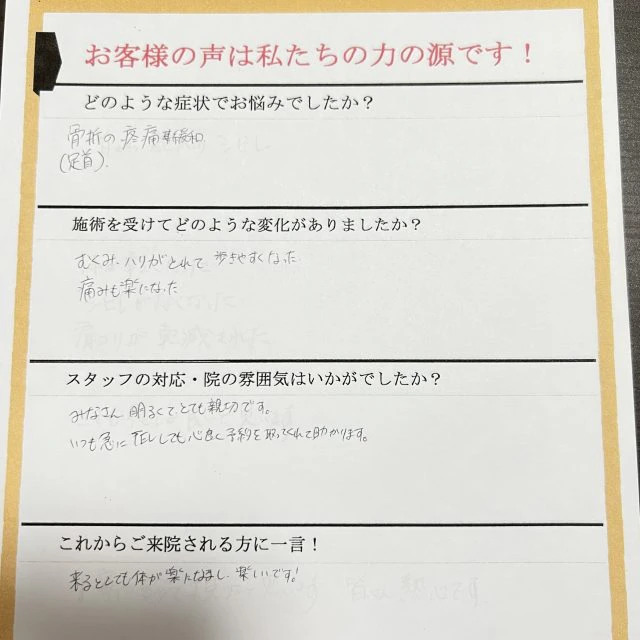 お客様の声は私たちの力の源です！
どのような症状でお悩みでしたか？
骨折の疼痛緩和
(足首).
施術を受けてどのような変化がありましたか？
むくみ、ハリがとれて 歩きやすくなった
痛みも楽になった
スタッフの対応・院の雰囲気はいかがでしたか？
みなさん 明るくてとても親切です。
いつも急に TELしても心良く予約を取ってくれて助かります。
これからご来院される方に一言！
来るととても体が楽になるし、楽しいです!